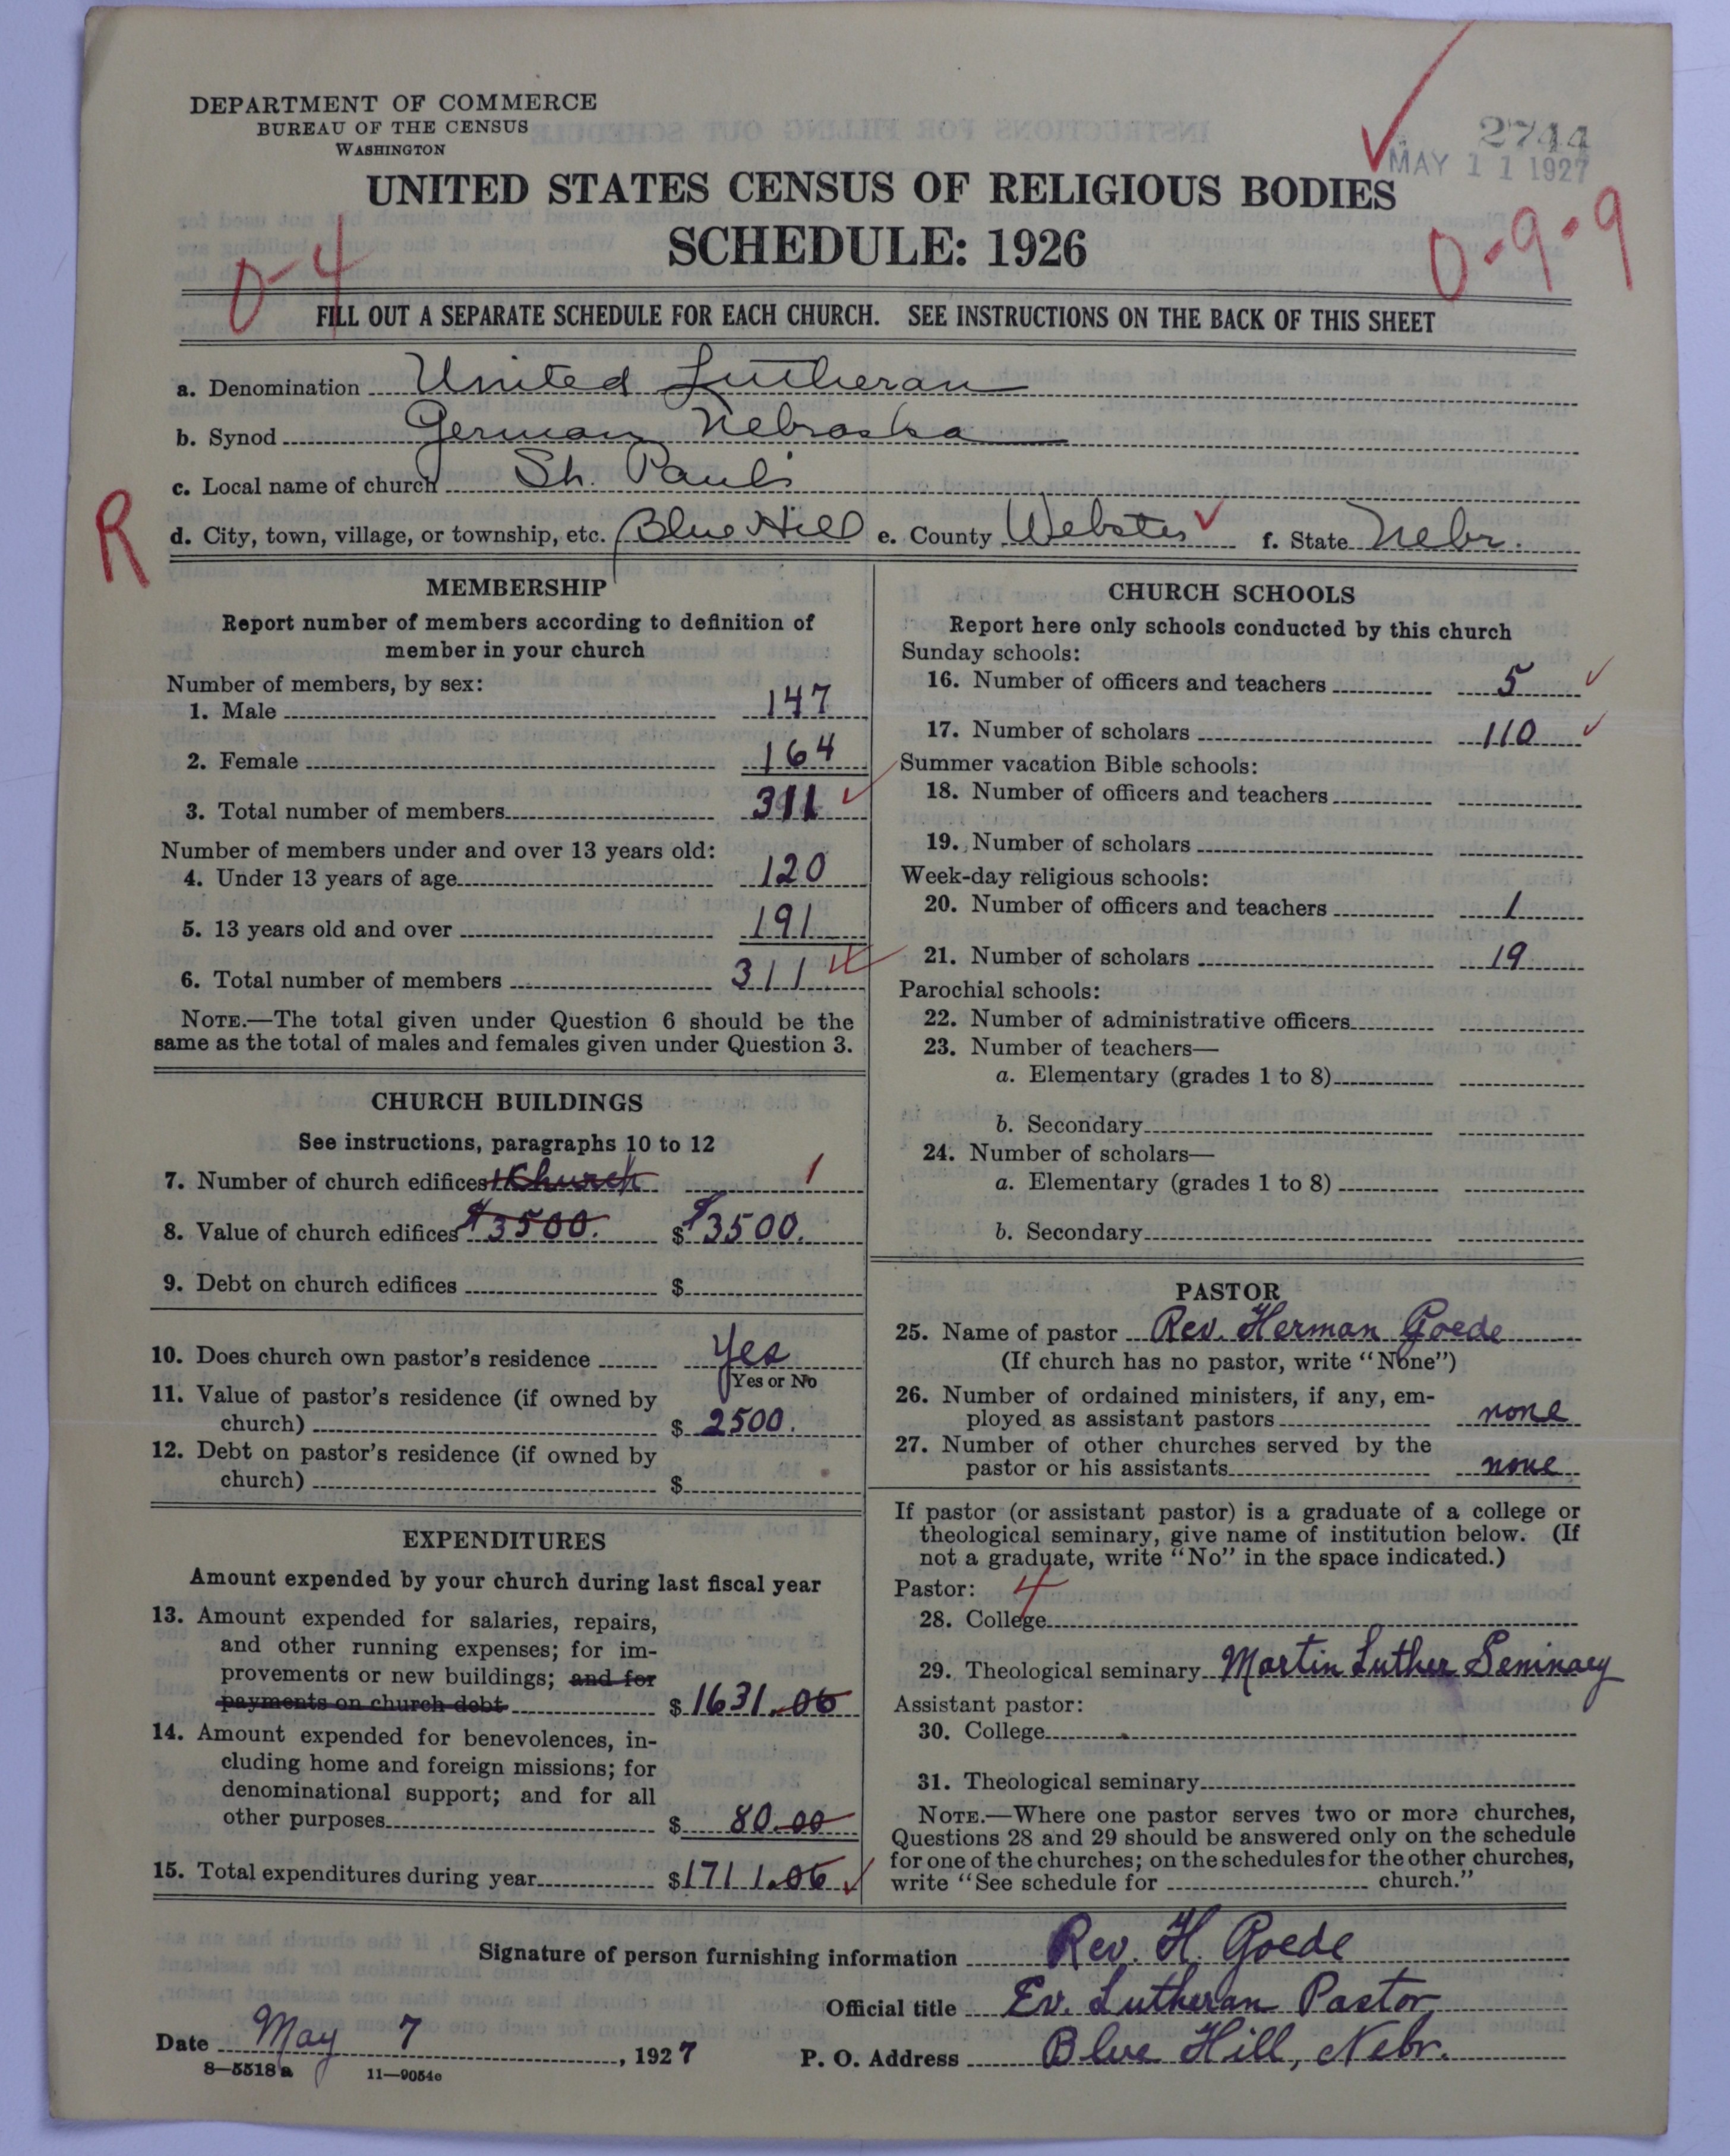 DEPARTMENT OF COMMERCE
BUREAU OF THE CENSUS
WASHINGTON
2744
MAY 11 1927
UNITED STATES CENSUS OF RELIGIOUS BODIES
SCHEDULE: 1926
0-4
0-9-9
FILL OUT A SEPARATE SCHEDULE FOR EACH CHURCH. SEE INSTRUCTIONS ON THE BACK OF THIS SHEET
a. Denomination United Lutheran
b. Synod German Nebraska
c. Local name of church St. Pauls
R
d. City, town, village, or township, etc. Blue Hill e. County Webster f. State Nebr.
MEMBERSHIP
Report number of members according to definition of
member in your church
Number of members, by sex:
1. Male 147
2. Female 164
3. Total number of members 311
Number of members under and over 13 years old:
4. Under 13 years of age 120
5. 13 years old and over 191
6. Total number of members 311
NOTE.—The total given under Question 6 should be the
same as the total of males and females given under Question 3.
CHURCH BUILDINGS
See instructions, paragraphs 10 to 12
7. Number of church edifices 1 Church 1
8. Value of church edifices $3500. $ $3500.
9. Debt on church edifices $
10. Does church own pastor's residence Yes
Yes or No
11. Value of pastor's residence (if owned by
church) $ 2500.
12. Debt on pastor's residence (if owned by
church) $
EXPENDITURES
Amount expended by your church during last fiscal year
13. Amount expended for salaries, repairs,
and other running expenses; for im-
provements or new buildings; and for
payments on church debt $ 1631.06
14. Amount expended for benevolences, in-
cluding home and foreign missions; for
denominational support; and for all
other purposes $ 80.00
15. Total expenditures during year $1711.06
CHURCH SCHOOLS
Report here only schools conducted by this church
Sunday schools:
16. Number of officers and teachers 5
17. Number of scholars 110
Summer vacation Bible schools:
18. Number of officers and teachers
19. Number of scholars
Week-day religious schools:
20. Number of officers and teachers 1
21. Number of scholars 19
Parochial schools:
22. Number of administrative officers
23. Number of teachers—
a. Elementary (grades 1 to 8)
b. Secondary
24. Number of scholars—
a. Elementary (grades 1 to 8)
b. Secondary
PASTOR
25. Name of pastor Rev. Herman Goede
(If church has no pastor, write "None")
26. Number of ordained ministers, if any, em-
ployed as assistant pastors none
27. Number of other churches served by the
pastor or his assistants none
If pastor (or assistant pastor) is a graduate of a college or
theological seminary, give name of institution below. (If
not a graduate, write "No" in the space indicated.)
Pastor: 4
28. College
29. Theological seminary Martin Luther Seminary
Assistant pastor:
30. College
31. Theological seminary
NOTE.—Where one pastor serves two or more churches,
Questions 28 and 29 should be answered only on the schedule
for one of the churches; on the schedules for the other churches,
write "See schedule for church."
Signature of person furnishing information Rev. H. Goede
Official title Ev. Lutheran Pastor
Date May 7, 1927 P. O. Address Blue Hill, Nebr.
8—5518 a 11—9054c